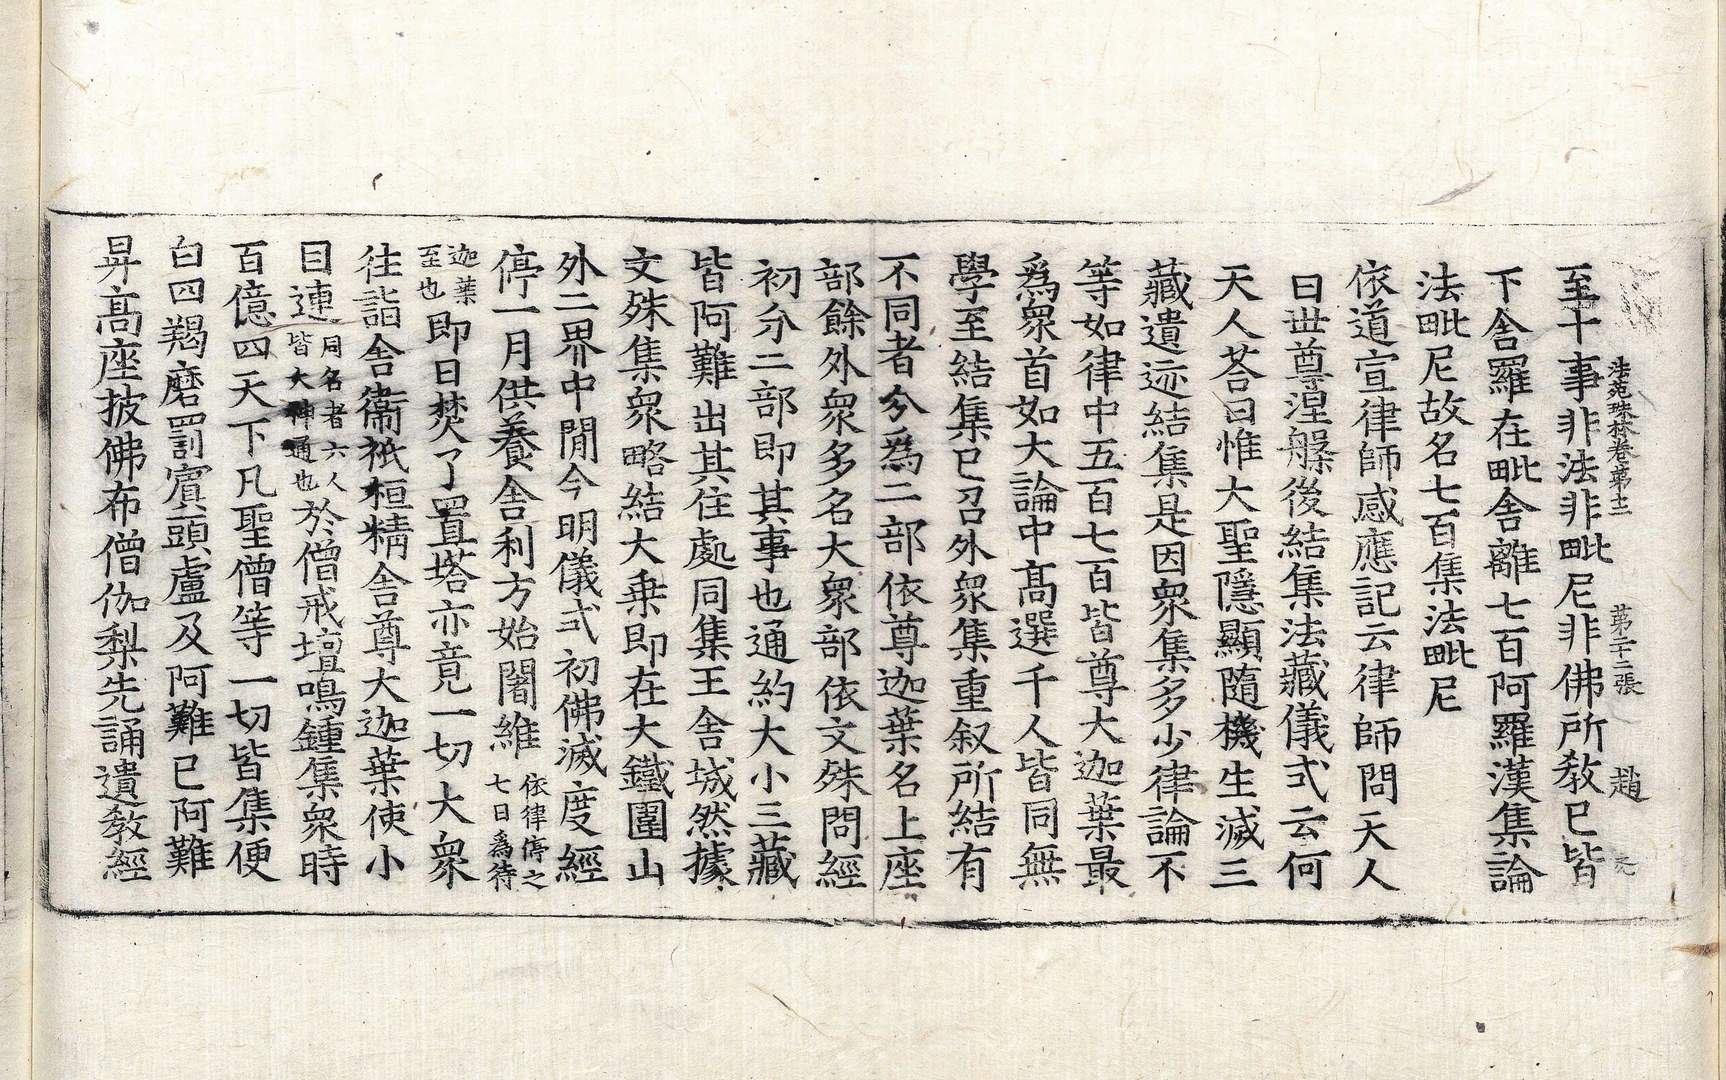 法苑珠林卷第十二 第二十二張 趙
至十事非法非毗尼非佛所教已皆
下舍羅在毗舍離七百阿羅漢集論
法毗尼故名七百集法毗尼
依道宣律師感應記云律師問天人
曰世尊涅槃後結集法藏儀式云何
天人荅曰惟大聖隱顯隨機生滅三
藏遺迹結集是因衆集多少律論不
等如律中五百七百皆尊大迦葉最
爲衆首如大論中髙選千人皆同無
學至結集已召外衆集重叙所結有
不同者分爲二部依尊迦葉名上座
部餘外衆多名大衆部依文殊問經
初分二部即其事也通約大小三藏
皆阿難出其住處同集王舍城然據
文殊集衆略結大乗即在大鐵圍山
外二界中閒今明儀式初佛滅度經
停一月供養舍利方始闍維依律停之七日爲待
迦葉至也即日焚了置塔亦竟一切大衆
往詣舍衛祇桓精舍尊大迦葉使小
目連同名者六人皆大神通也於僧戒壇鳴鍾集衆時
百億四天下凡聖僧等一切皆集便
白四羯磨罰賓頭盧及阿難已阿難
昇髙座披佛布僧伽梨先誦遺教經